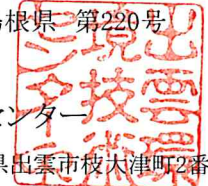 島根県 第220号
センター
県出雲市枝大津町2番
出雲環
境技術